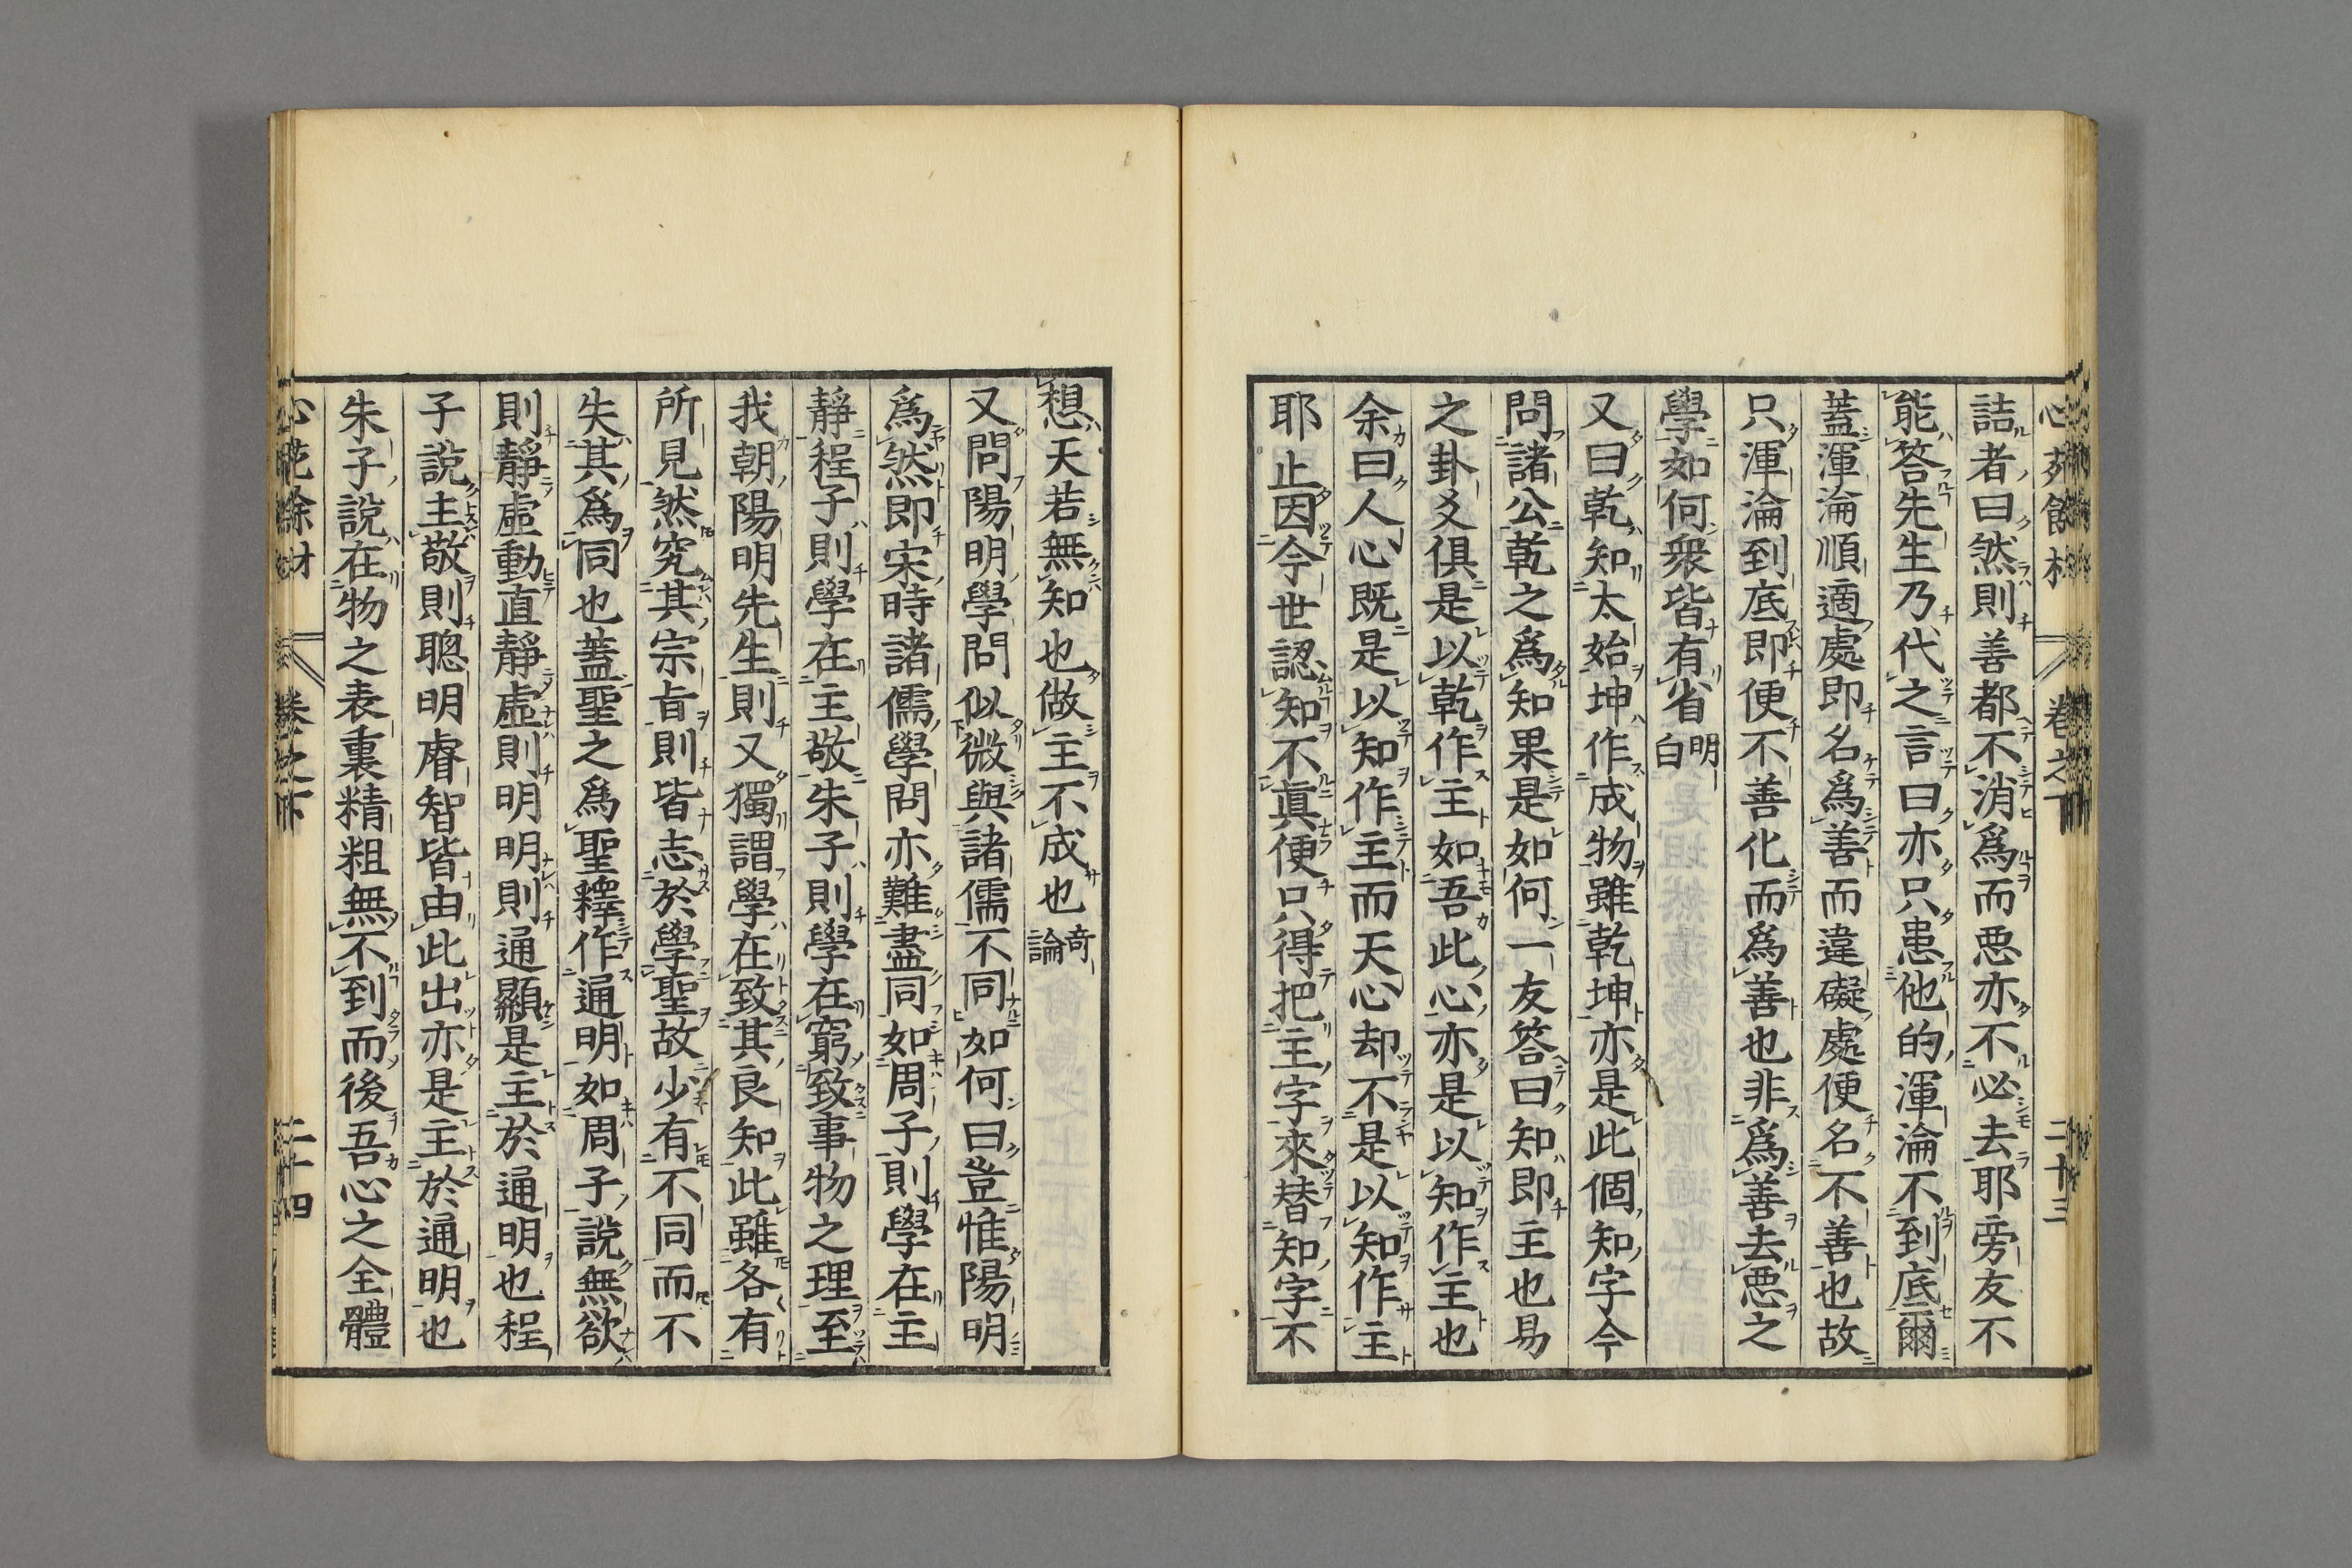 詰者曰然則善都不消爲而惡亦不必去耶旁友不
能答先生乃代之言曰亦只患他的渾淪不到底爾
蓋渾淪順適處即名爲善而違礙處便名不善也故
只渾淪到底即便不善化而爲善也非爲善去惡之
學如何衆皆有省明白
又曰乾知太始坤作成物雖乾坤亦是此個知字今
問諸公乾之爲知果是如何一友答曰知即主也易
之卦爻俱是以乾作主如吾此心亦是以知作主也
余曰人心既是以知作主而天心却不是以知作主
耶止因今世認知不真便只得把主字來替知字不
想天若無知也做主不成也奇論
又問陽明學問似微與諸儒不同如何曰豈惟陽明
爲然即宋時諸儒學問亦難盡同如周子則學在主
靜程子則學在主敬朱子則學在窮致事物之理至
我朝陽明先生則又獨謂學在致其良知此雖各有
所見然究其宗旨則皆志於學聖故少有不同而不
失其爲同也蓋聖之爲聖釋作通明如周子說無欲
則靜虛動直靜虛則明明則通顯是主於通明也程
子說主敬則聰明睿智皆由此出亦是主於通明也
朱子說在物之表裏精粗無不到而後吾心之全體
卷之下
二十三
二十四